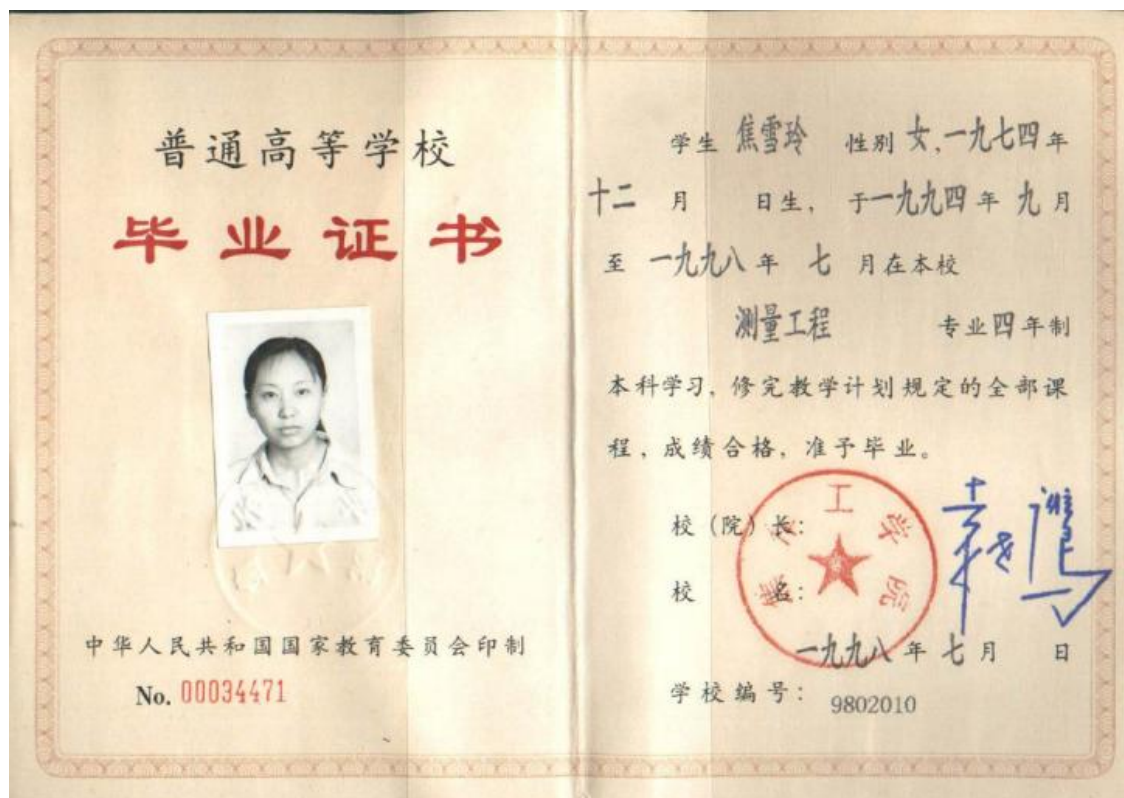 普通高等学校
毕业证书
中华人民共和国国家教育委员会印制
No. 00034471
学生 焦雪玲 性别 女,一九七四年
十二 月 日生, 于一九九四年 九月
至 一九九八年 七 月在本校
测量工程 专业四年制
本科学习, 修完教学计划规定的全部课
程, 成绩合格, 准予毕业。
校(院)长:
校 名:
工学院
一九九八年七月 日
学校编号: 9802010